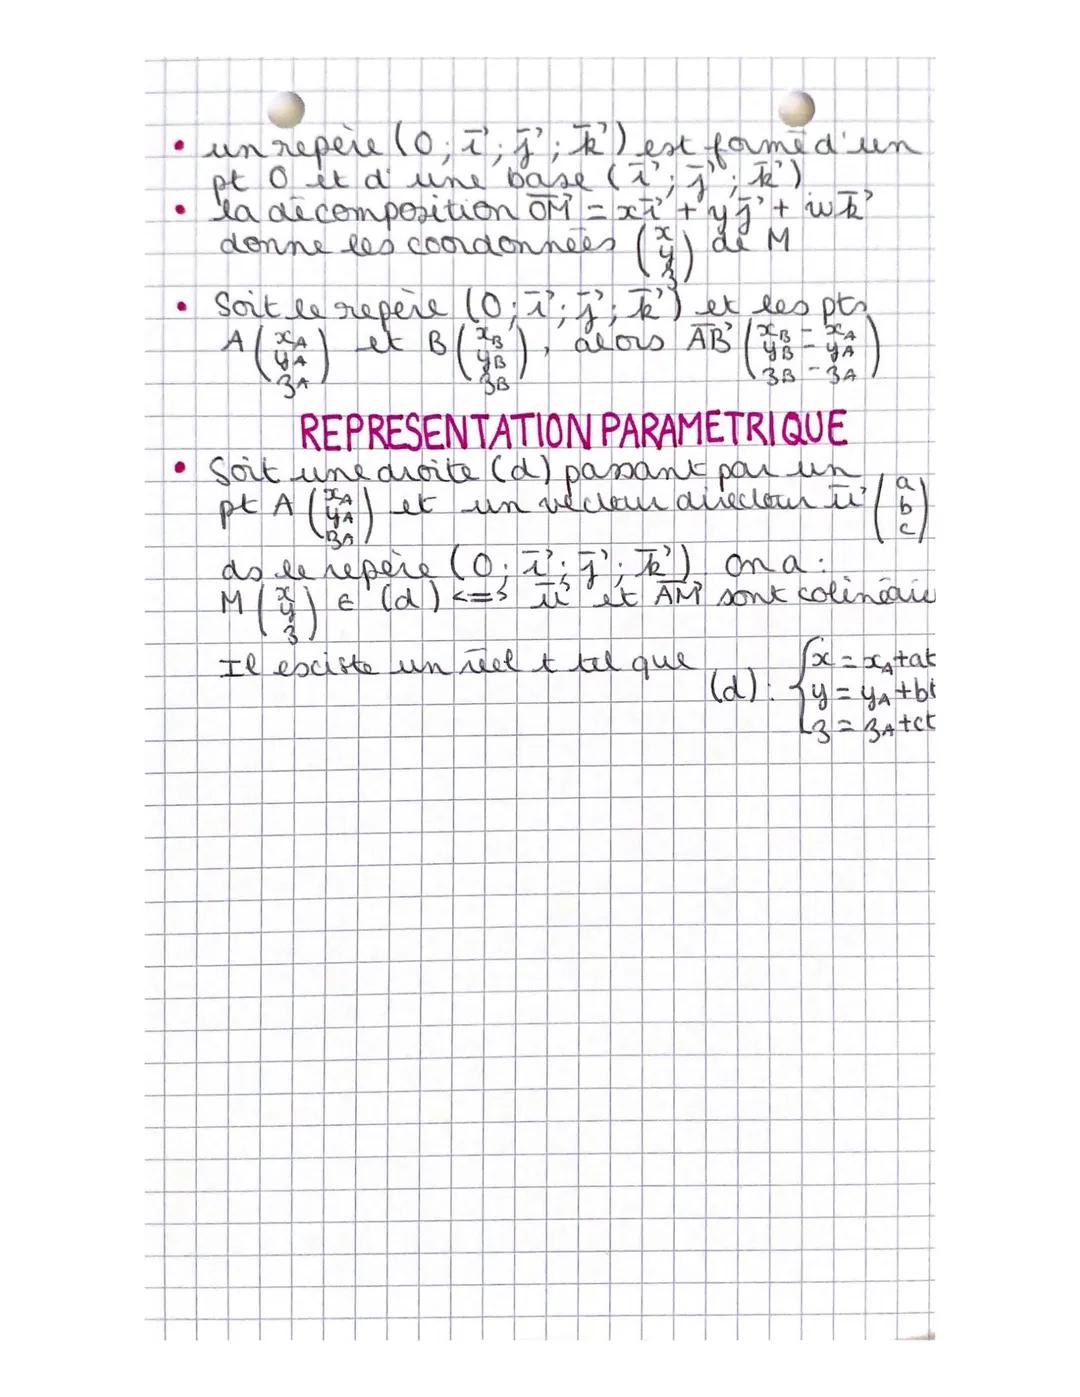 • un repère (O; i⃗; j⃗; k⃗) est formé d'un
pt O et d'une base (i⃗; j⃗; k⃗)
• la décomposition OM⃗ = xi⃗ + yj⃗ + wk⃗
donne les coordonnées (x y z) de M
• Soit le repère (O; i⃗; j⃗; k⃗) et les pts
A (xA yA zA) et B (xB yB zB), alors AB⃗ (xB - xA yB - yA zB - zA)
REPRESENTATION PARAMETRIQUE
• Soit une droite (d) passant par un
pt A (xA yA zA) et un vecteur directeur u⃗ (a b c)
ds le repère (O; i⃗; j⃗; k⃗) on a :
M (x y z) ∈ (d) <=> u⃗ et AM⃗ sont colinéaire
Il existe un réel t tel que
(d) : { x = xA + at
y = yA + bt
z = zA + ct